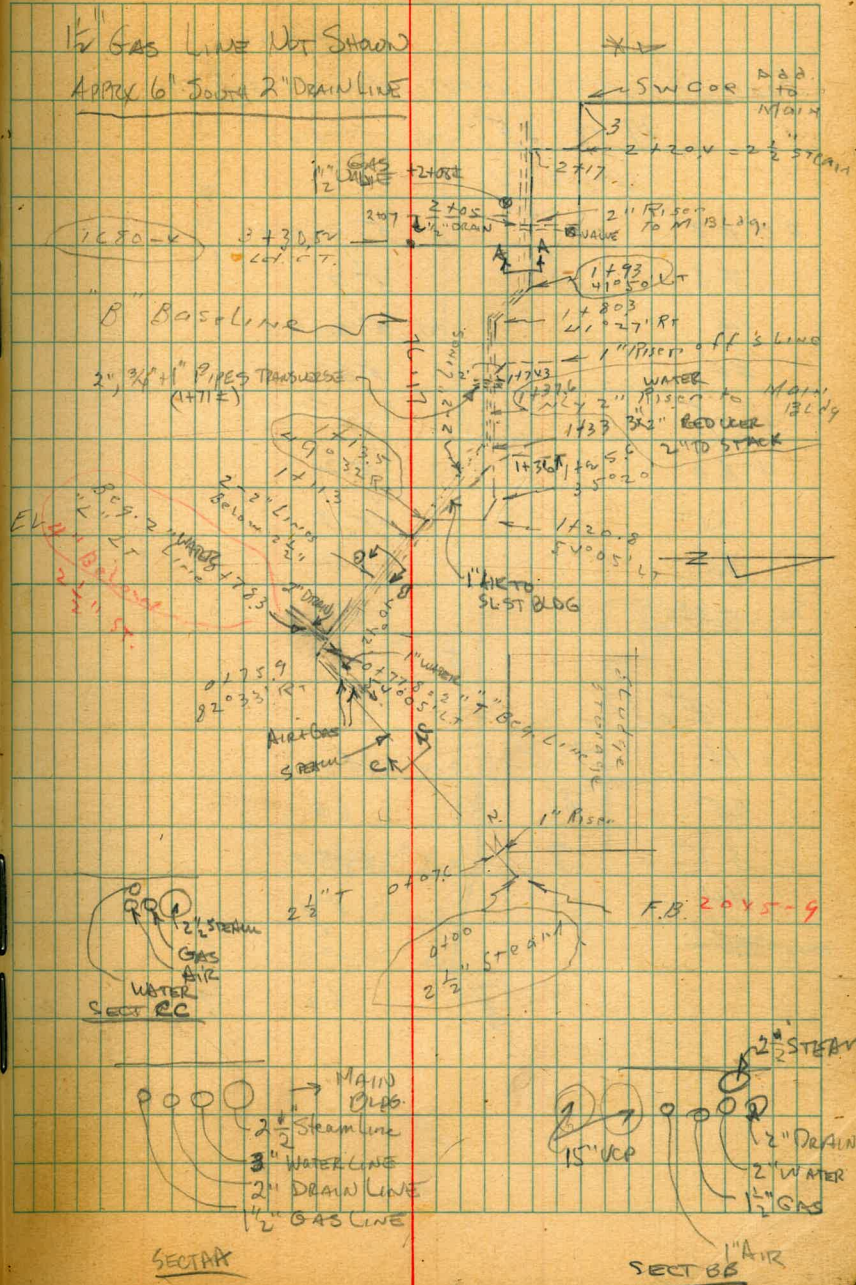 1½" GAS LINE NOT SHOWN
APPRX 6" SOUTH 2" DRAIN LINE
SW COR
Add
to
Main
3
2+20.4 = 2½" STEAM
2+17
GAS
1½" VALVE +2+08±
2+07
2+05
1½" DRAIN
2" RISER
TO M BLDG.
VALVE
3+30.52
A A
1+93
41°50' LT
"B" BaseLine
1+80.3
41°27' RT
1" Riser off 3" LINE
2", ¾" + 1" PIPES TRANSVERSE
(1+71±)
16.17
2-2" LINES
2"
1+74.3
WATER
1+37.6
NLY 2" Riser to MAIN
BLdg
1+33 3x2" REDUCER
2" TO STACK
1+36
1+25.6
35°20'
1+13.5
49°32' RT
1+11.3
1+20.8
54°05' LT
N
2-2" LINES
Below 2½"
Beg. 2" WATER
Line
0+78.3
EL 4" Below
2½" ST.
1" AIR TO
SLST BLDG
B B
2" DRAIN
1" WATER
0+77.8 = 2" T. Beg. Line
54°05' LT
0+75.9
82°33' RT
AIR + GAS
STEAM
C C
Sludge
Storage
2
1" Riser
0+07.6
2½" T
F.B. 2045-9
0+00
2½" Steam
2½" STEAM
GAS
AIR
WATER
SECT CC
MAIN
BLDG.
2½" Steam Line
3" WATER LINE
2" DRAIN LINE
1½" GAS LINE
SECT AA
2½" STEAM
15" VCP
2" DRAIN
2" WATER
1½" GAS
1" AIR
SECT BB